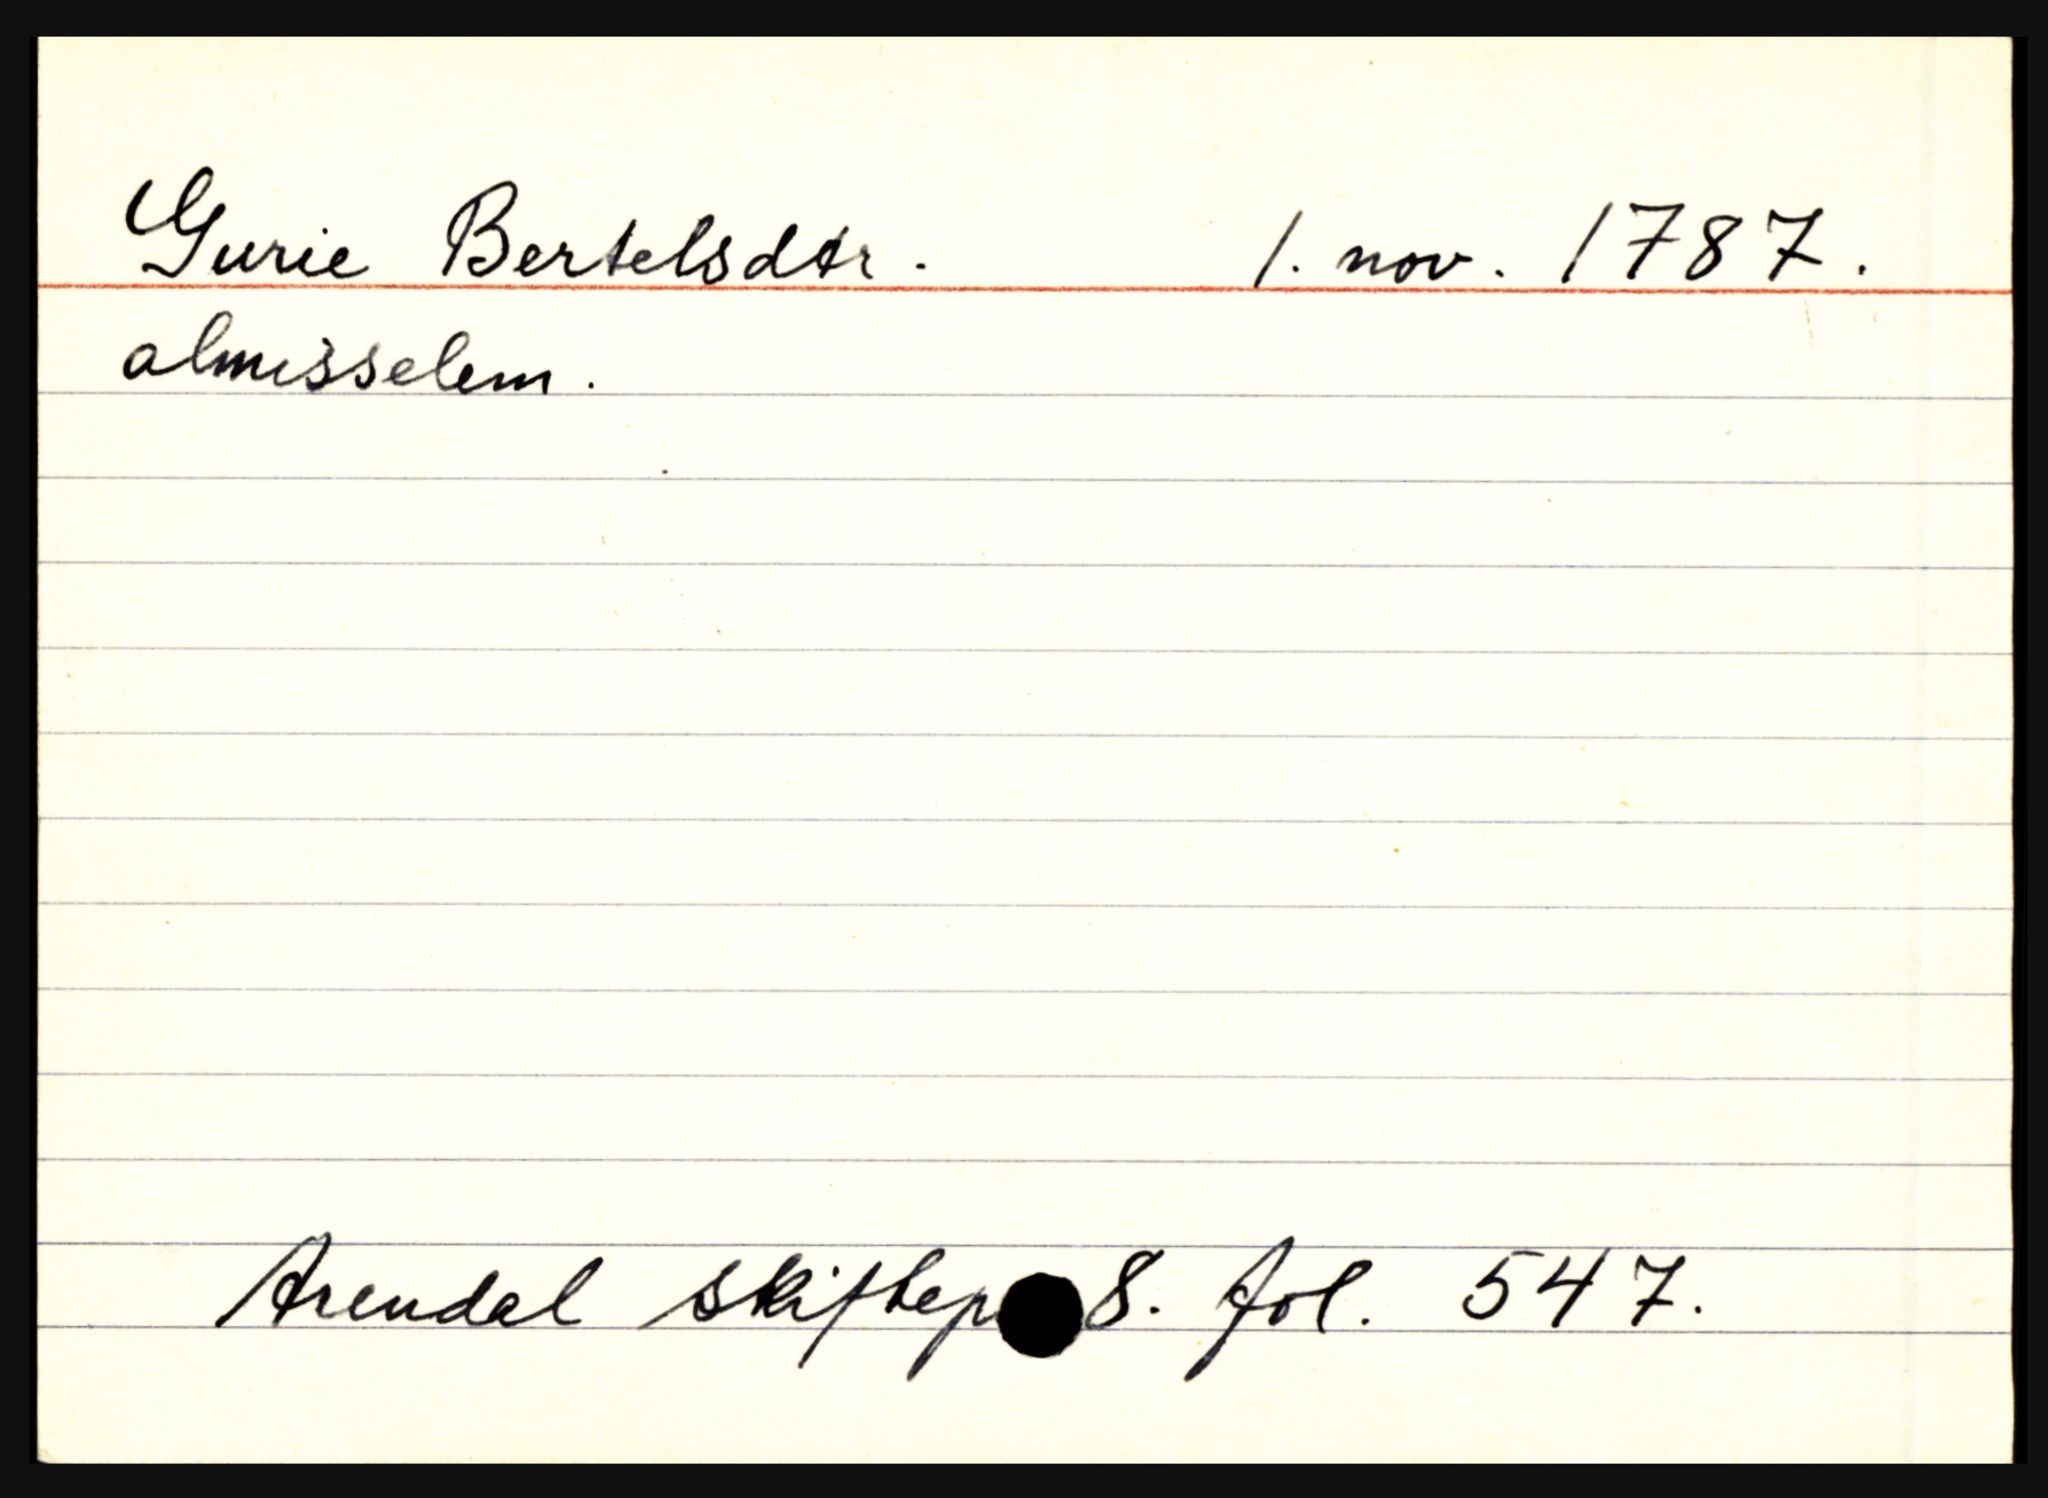 Gurie Bertelsdtr. 1. nov. 1787.
almisselem.
Arendal skiftep 8. fol. 547.